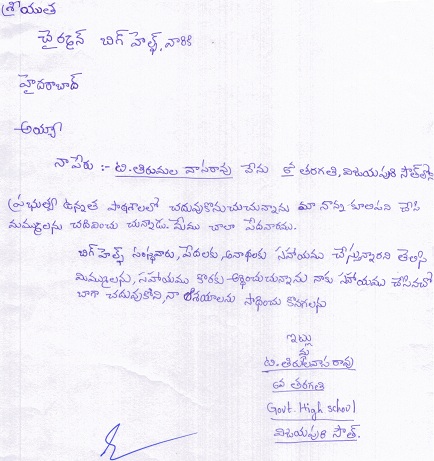 శ్రీయుత
చైర్మన్ బిగ్ హెల్ప్, వారికి
హైదరాబాద్
అయ్యా
నా పేరు :- టి. తిరుమల వాసరావు నేను 8వ తరగతి, విజయపురి సౌత్‌లోని
ప్రభుత్వ ఉన్నత పాఠశాలలో చదువుకొనుచున్నాను మా నాన్న కూలిపని చేసి
మమ్ములను చదివించు చున్నాడు. మేము చాలా పేదవారము.
బిగ్ హెల్ప్ సంస్థవారు, పేదలకు, అనాథలకు సహాయము చేస్తున్నారని తెలిసి
మిమ్ములను, సహాయము కొరకు అర్థించుచున్నాను నాకు సహాయము చేసినచో
బాగా చదువుకొని, నా ఆశయాలను సాధించు కొనగలను
ఇట్లు
మీ
టి. తిరుమల వాసరావు
8వ తరగతి
Govt. High school
విజయపురి సౌత్.